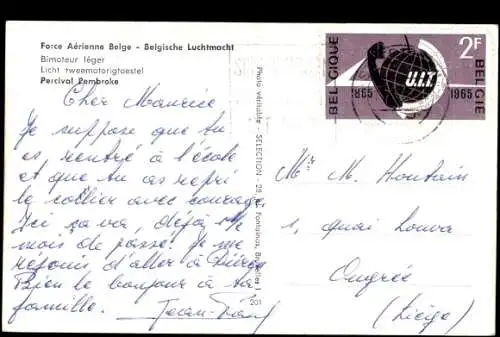 Force Aérienne Belge - Belgische Luchtmacht
Bimoteur léger
Licht tweemotorigtoestel
Percival Pembroke
Cher Maurice
Je suppose que tu
es rentré à l'école
et que tu as repri
le collier avec courage
Ici ça va, déjà
mois de passé. Je me
réjouis d'aller à
Bien le bonjour à ta
famille. Jean-Paul
Photo véritable - SELECTION - 29, Bruxelles 1
201
BELGIQUE
2F
BELGIE
U.I.T.
1865
1965
Mr M. Houtain
1, quai
Ougrée
(Liège)